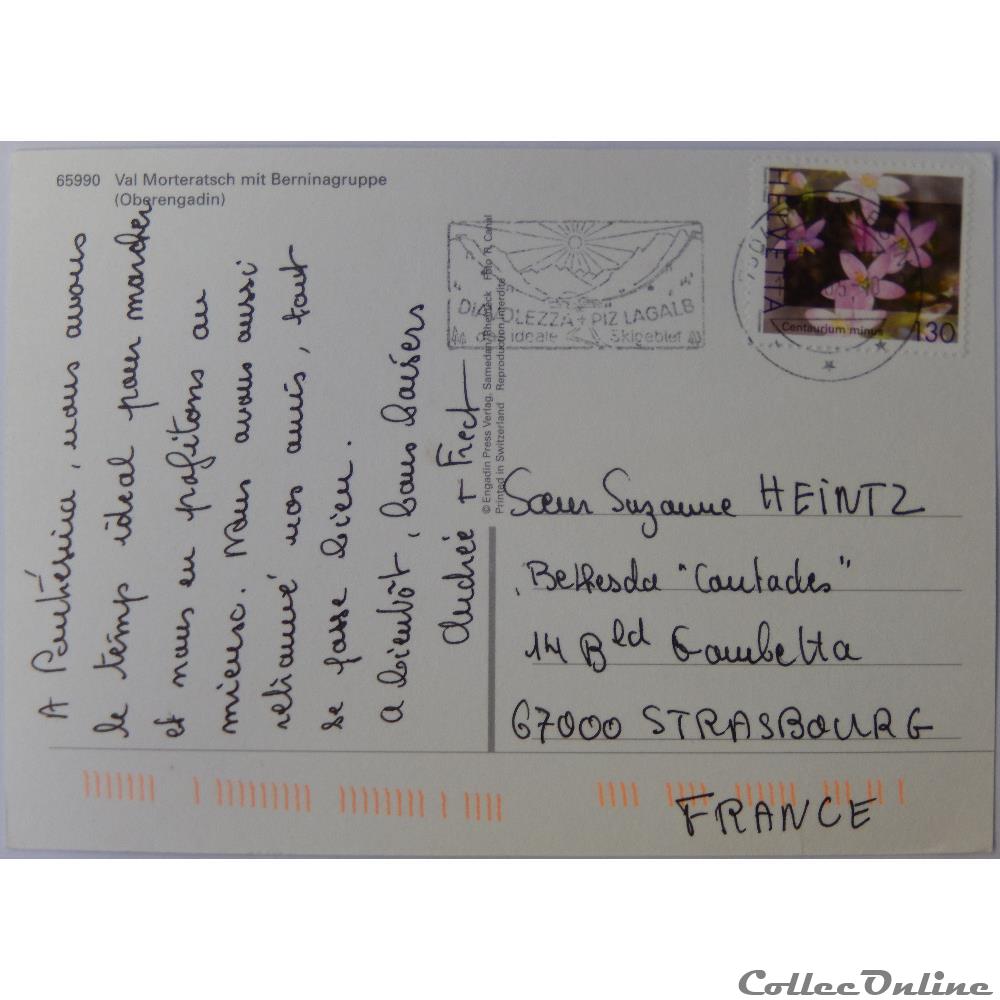 65990 Val Morteratsch mit Berninagruppe
(Oberengadin)
A Pontrésina, nous avons
le temps idéal pour marcher
et nous en profitons au
mieux. Nous avons aussi
retrouvé nos amis, tout
se passe bien.
a bientôt, bons baisers
Andrée + Fred
© Engadin Press Verlag, Samedan/Rheineck Foto R. Canal
Printed in Switzerland Reproduction interdite
DIAVOLEZZA + PIZ LAGALB
das ideale Skigebiet
HELVETIA
Centaurium minus
130
Sœur Suzanne HEINTZ
Bethesda "Contades"
14 Bld Gambetta
67000 STRASBOURG
FRANCE
CollecOnline